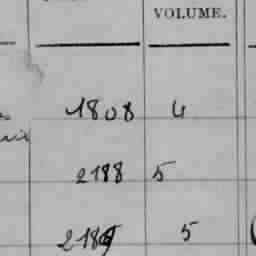 VOLUME.
1808 4
2188 5
2189 5